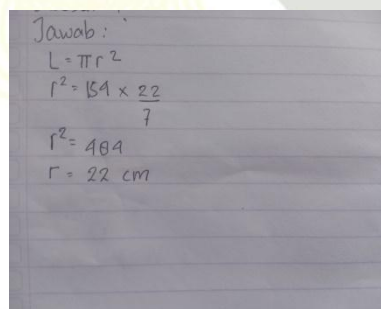 Jawab :
L = πr²
r² = 154 × 22/7
r² = 484
r = 22 cm